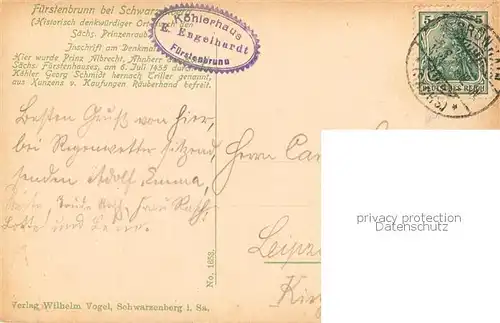 Fürstenbrunn bei Schwarzen
(Historisch denkwürdiger Ort
durch den
Sächs. Prinzenraub
Inschrift am Denkmal
Hier wurde Prinz Albrecht, Ahnherr des
Sächs. Fürstenhauses, am 8. Juli 1455 durch
Köhler Georg Schmidt hernach Triller genannt,
aus Kunzens v. Kaufungen Räuberhand befreit.
Köhlerhaus
E. Engelhardt
Fürstenbrunn
5 5
DEUTSCHES REICH
Besten Gruß von hier,
bei Regenwetter sitzend
senden Adolf, Emma,
Lotte und
Herrn Car
Leipzi
privacy protection
Datenschutz
No. 1653.
Verlag Wilhelm Vogel, Schwarzenberg i. Sa.